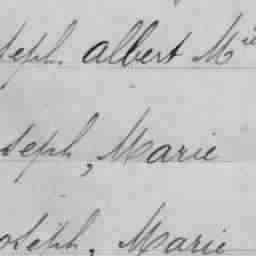 seph. albert Mie
seph, Marie
oseph, Marie